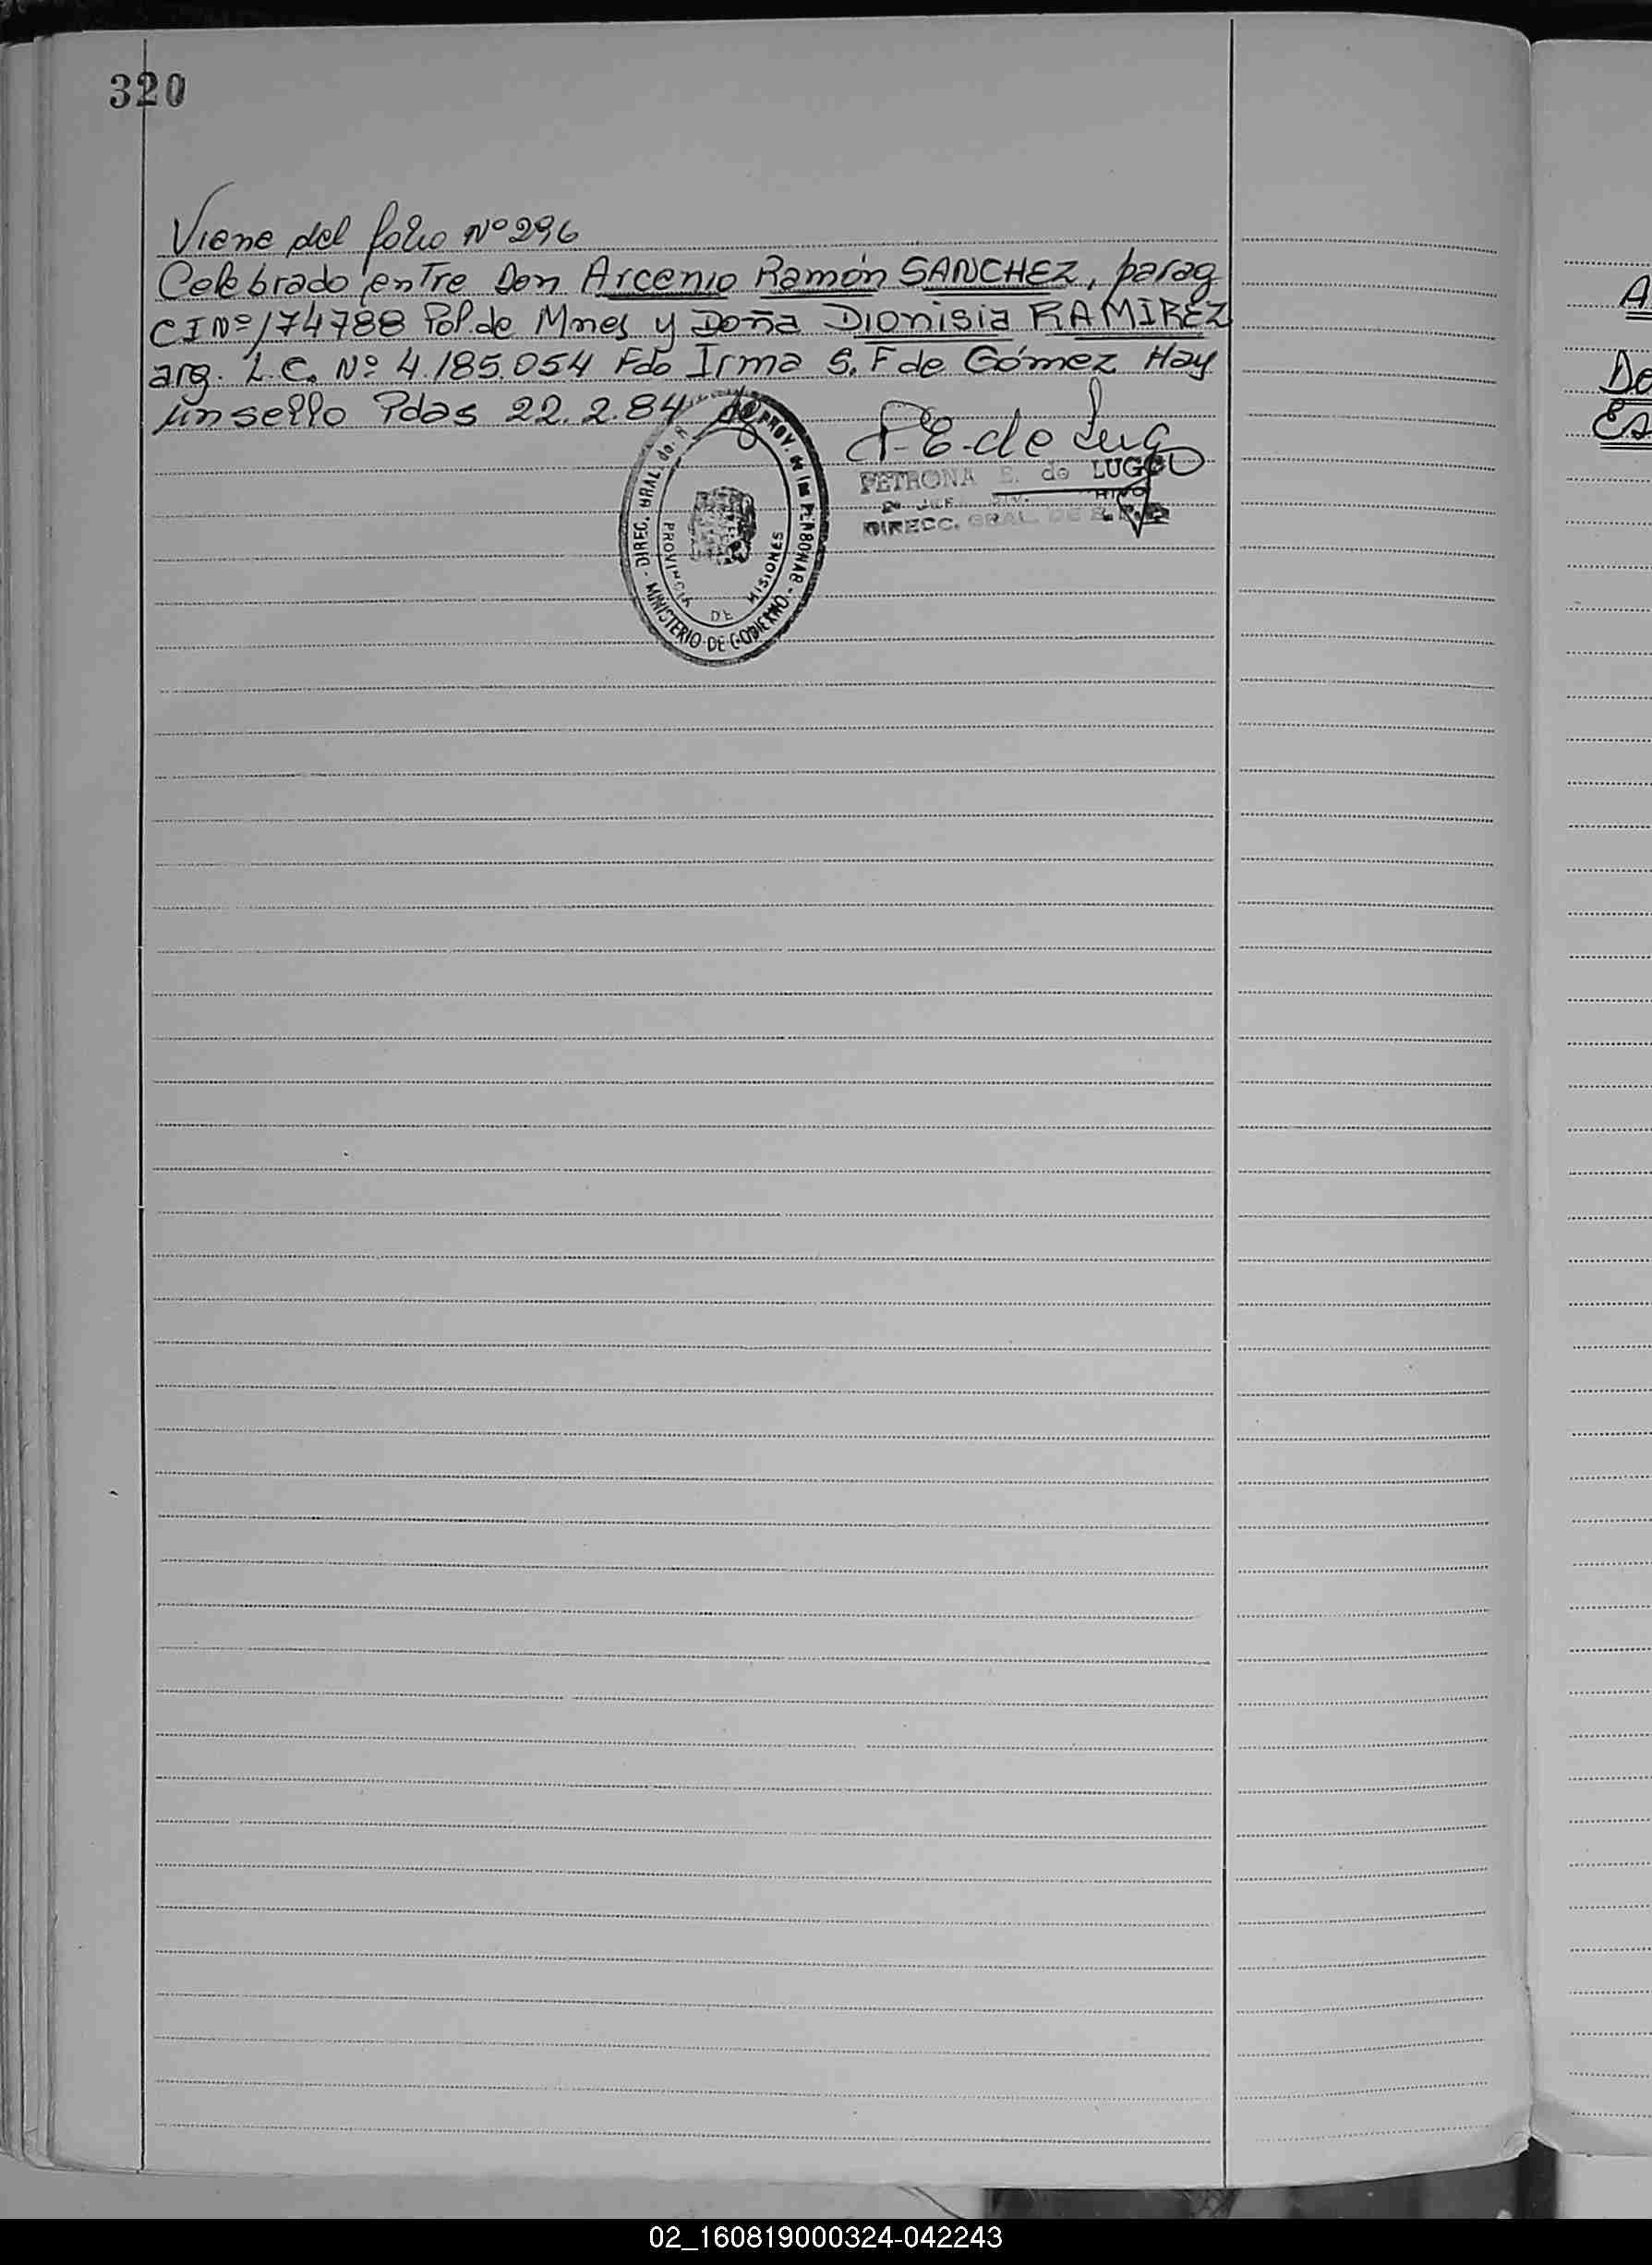 320
Viene del folio Nº 296
Celebrado entre Don Arcenio Ramón SANCHEZ, parag
CI Nº 174788 Pol. de Mnes y Doña Dionisia RAMIREZ
arg. L.C. Nº 4.185.054 Fdo Irma S. F de Gómez Hay
un sello Pdas 22.2.84
P. E. de Lugo
PETRONA E. de LUGO
DIRECC. GRAL. DE
DIREC. GRAL. de PROV. de las PERSONAS
MINISTERIO DE GOBIERNO
PROVINCIA DE MISIONES
A
De
Es
02_160819000324-042243